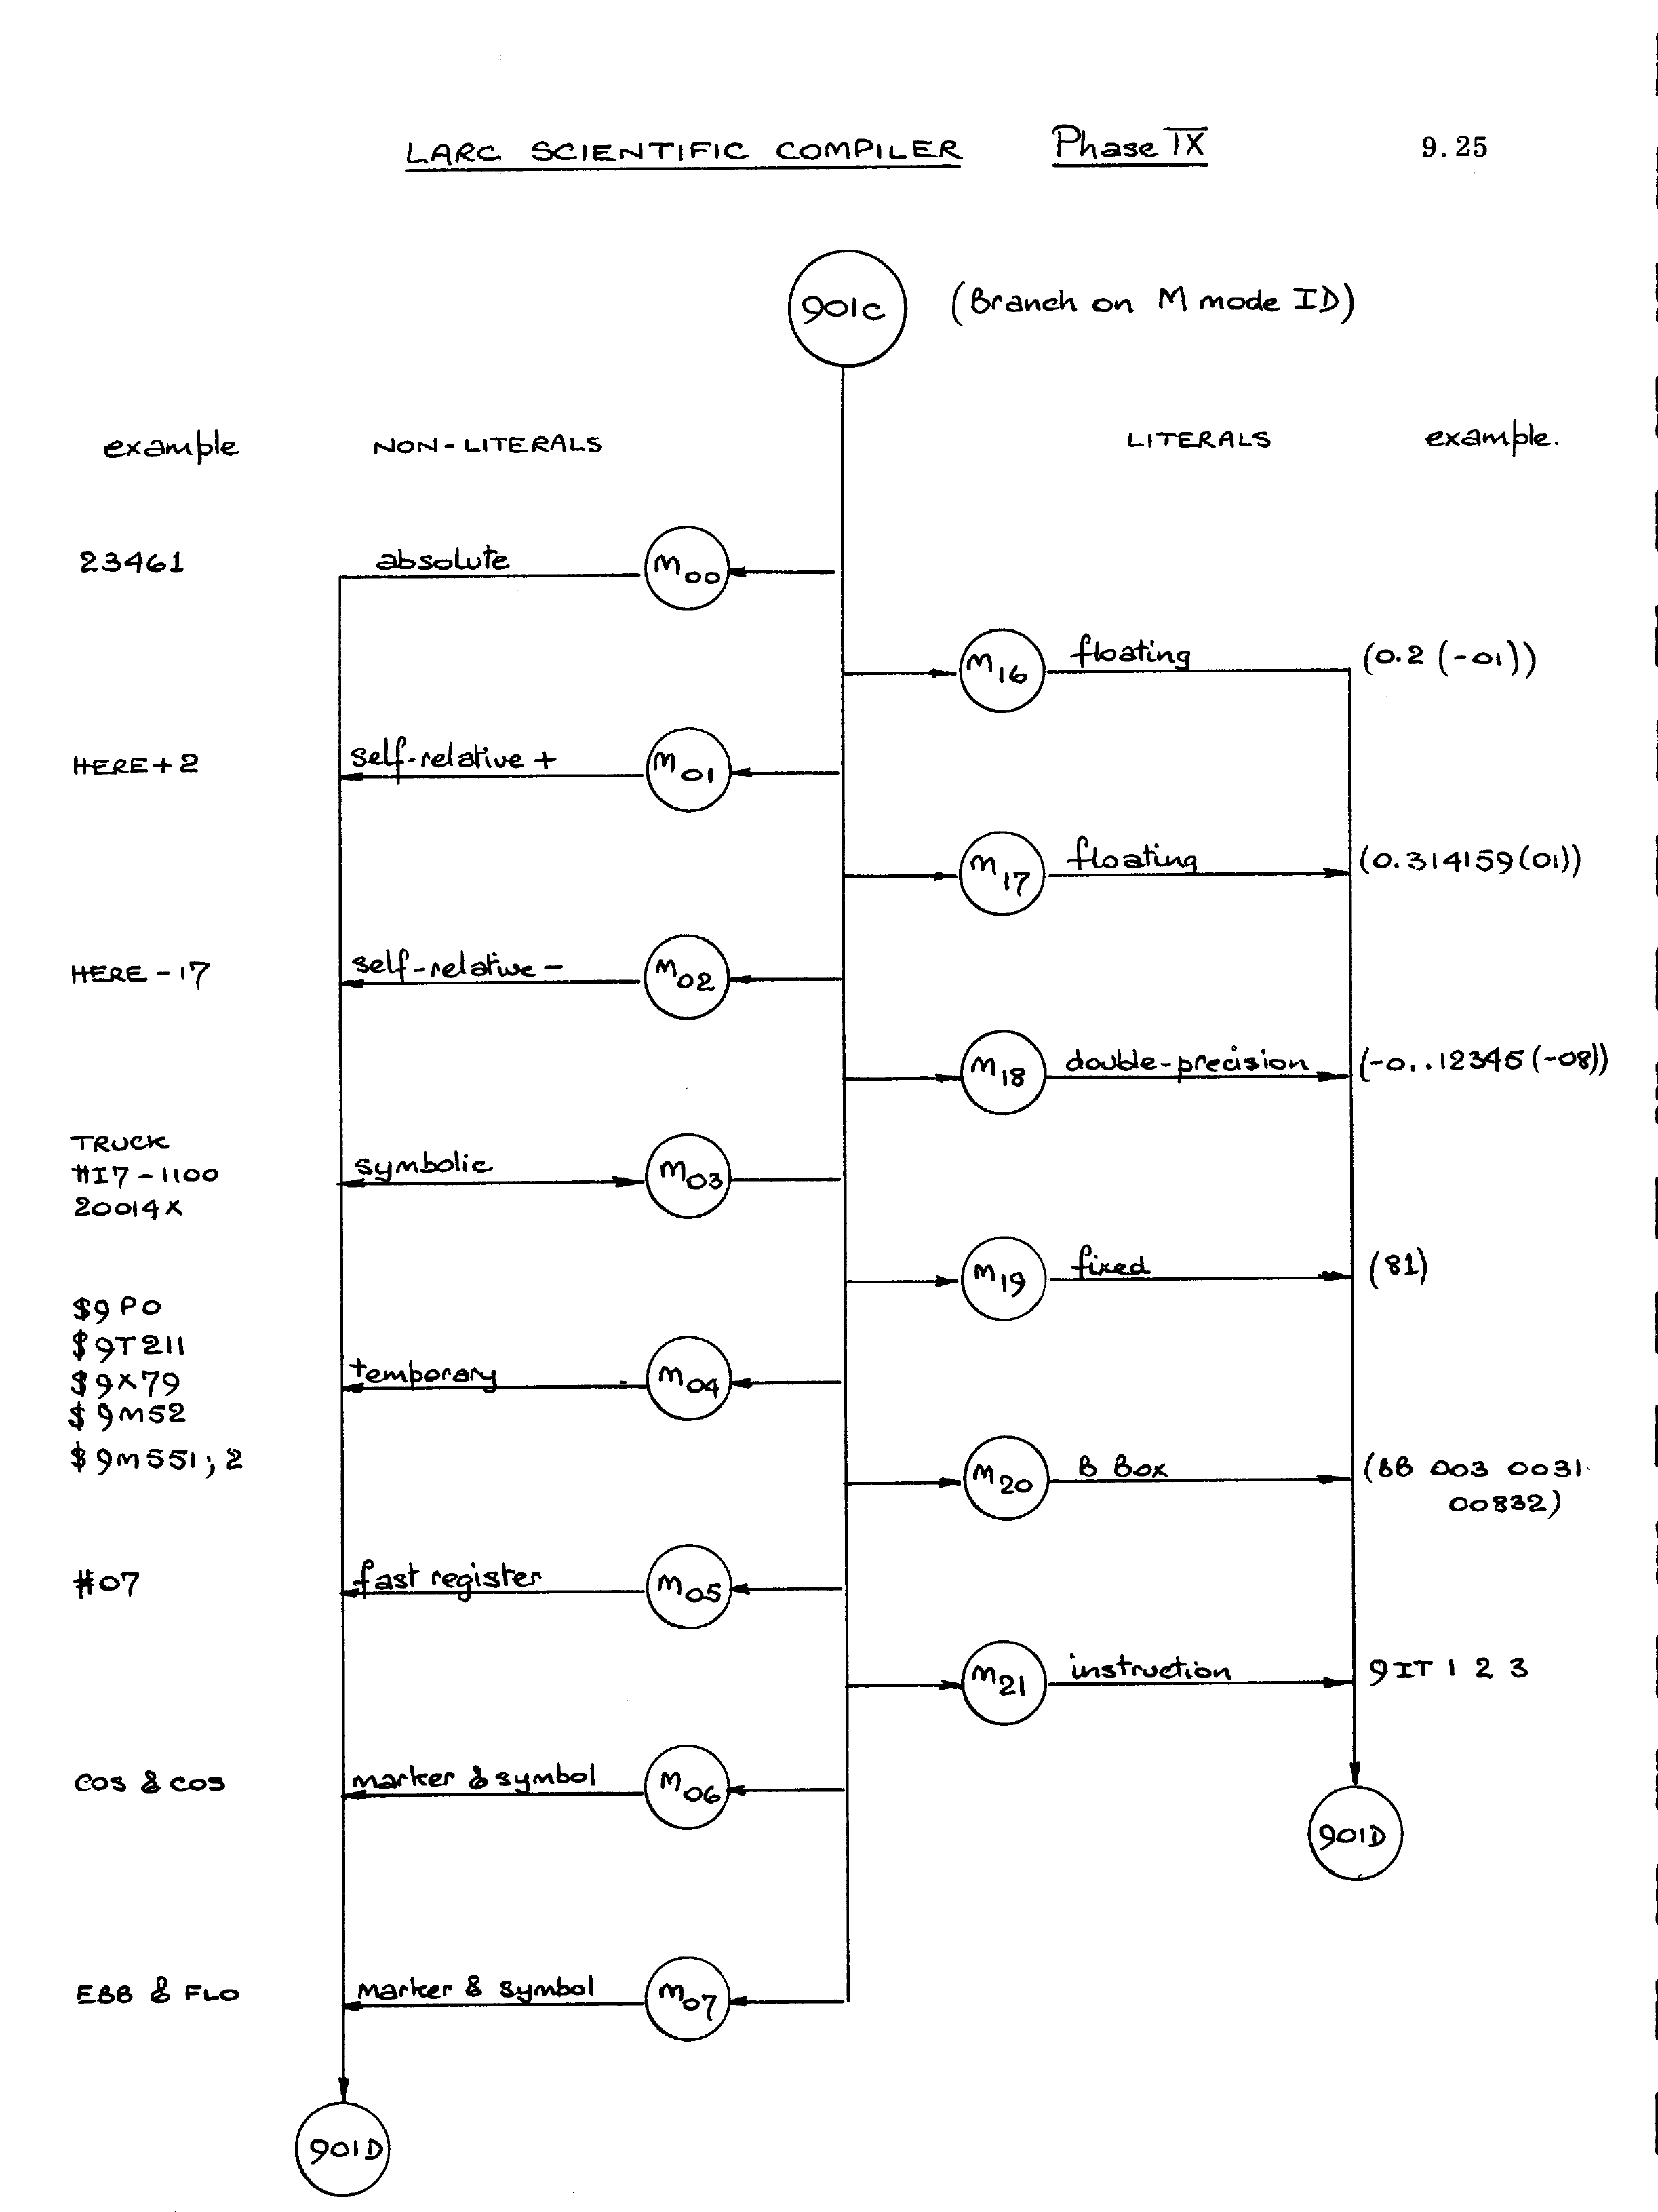 LARC SCIENTIFIC COMPILER Phase IX 9.25
901C (Branch on M mode ID)
example NON-LITERALS LITERALS example.
23461 absolute M00
M16 floating (0.2(-01))
HERE+2 self-relative + M01
M17 floating (0.314159(01))
HERE-17 self-relative - M02
M18 double-precision (-0..12345(-08))
TRUCK
#I7-1100 symbolic M03
20014X
M19 fixed (81)
$9P0
$9T211
$9X79 temporary M04
$9M52
$9M551;2
M20 B Box (BB 003 0031
00832)
#07 fast register M05
M21 instruction 9IT 1 2 3
COS & COS marker & symbol M06
901D
EBB & FLO marker & symbol M07
901D